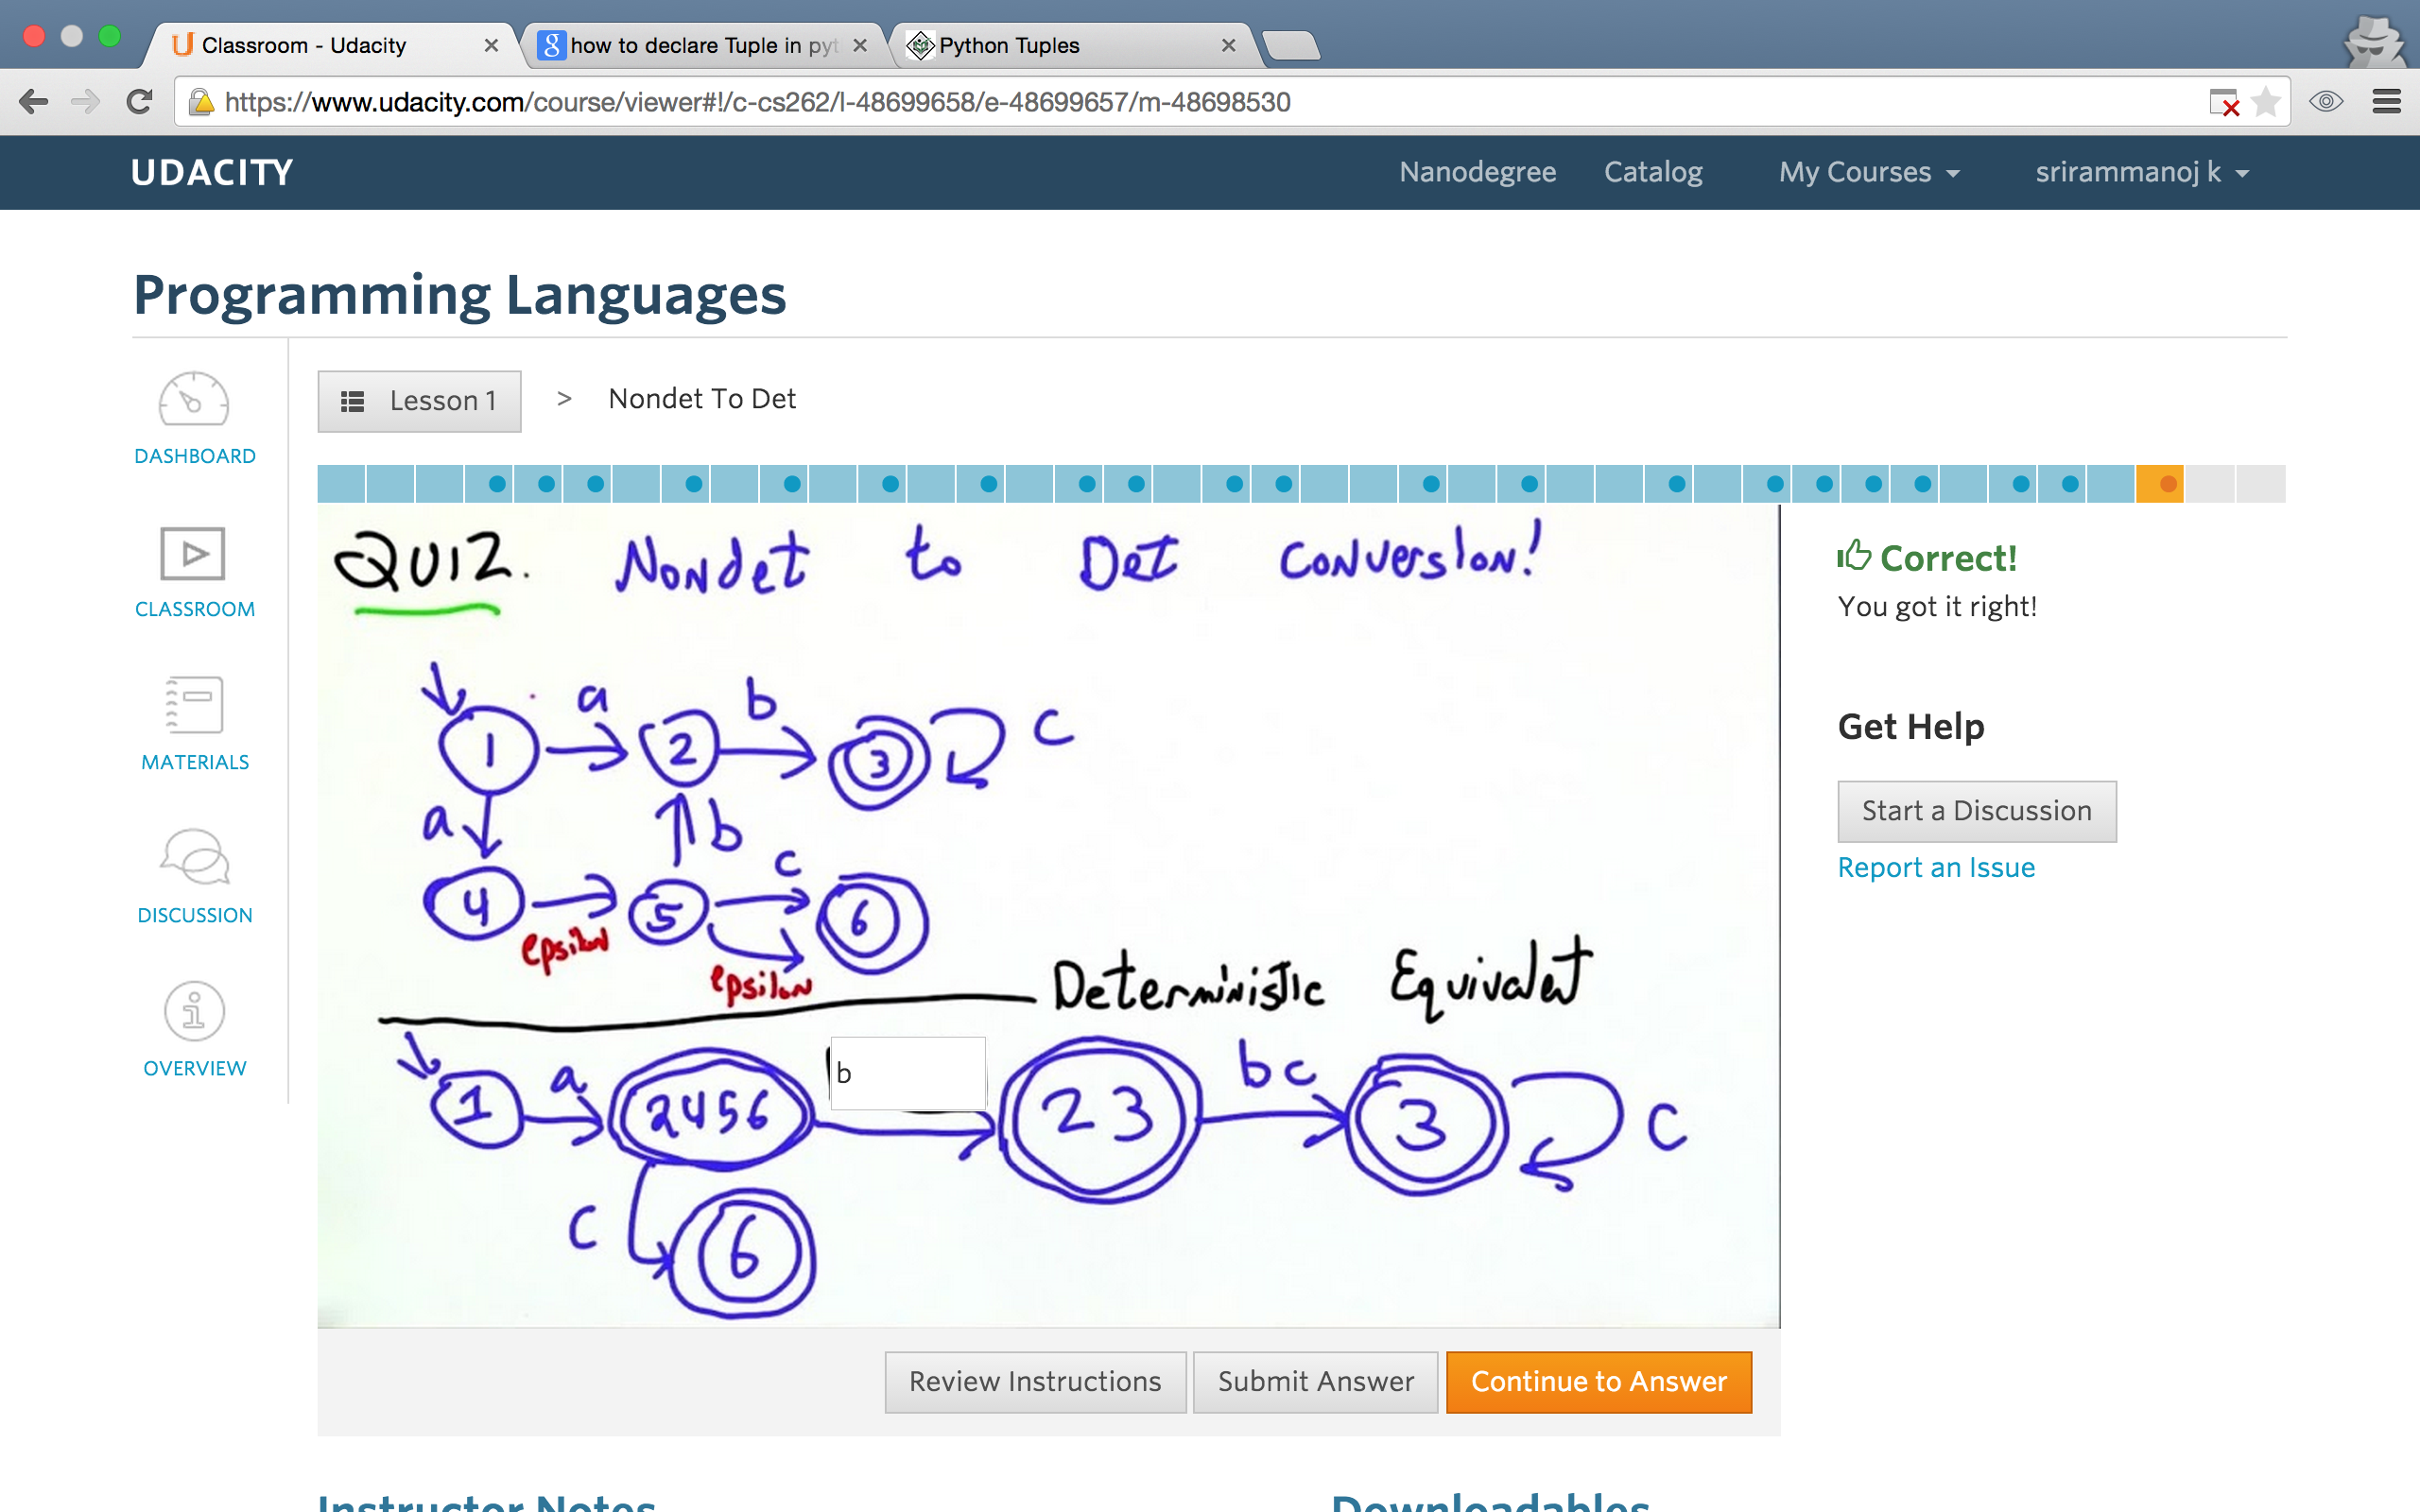 Classroom - Udacity
how to declare Tuple in pyt
Python Tuples
https://www.udacity.com/course/viewer#!/c-cs262/l-48699658/e-48699657/m-48698530
UDACITY Nanodegree Catalog My Courses srirammanoj k
Programming Languages
Lesson 1 > Nondet To Det
DASHBOARD
CLASSROOM
MATERIALS
DISCUSSION
OVERVIEW
QUIZ. Nondet to Det Conversion!
a b
1 2 3 c
a b c
4 5 6
epsilon
epsilon
Deterministic Equivalent
a b bc
1 2456 23 3 c
c 6
Correct!
You got it right!
Get Help
Start a Discussion
Report an Issue
Review Instructions Submit Answer Continue to Answer
Instructor Notes Downloadables